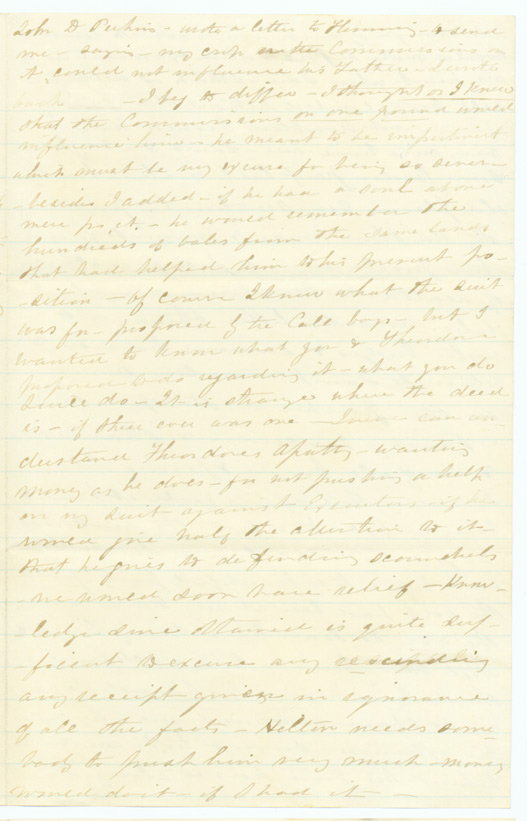 John D Perkins - wrote a letter to Flemming - & send
me - saying - my crop or the Commissions on
it could not influence his Father - I wrote
back - I beg to differ - I thought or I knew
that the Commissions on one pound would
influence him - he meant to be impertinent
which must be my excuse for being so severe -
besides I added - if he had a soul above
mere - he would remember the
hundreds of bales from the same hands
that had helped him to his present po-
-sition - of course I knew what the suit
was for - proposed by the Calt boys - but I
wanted to know what you & Theodore
proposed to do regarding it - what you do
 do - It is strange where the deed
is - if there ever was one - I can un-
derstand Theodores apathy - wanting
money as he does - for not pushing a help
on my suit against Executors - if he
would give half the attention to it -
that he gives to defending scoundrels
we would soon have relief - Know-
-ledge since obtained is quite suf-
ficient to excuse any rescinding
any receipt given in ignorance
of all the facts - Helton needs some
body to push him very much - money
would do it - if I had it -